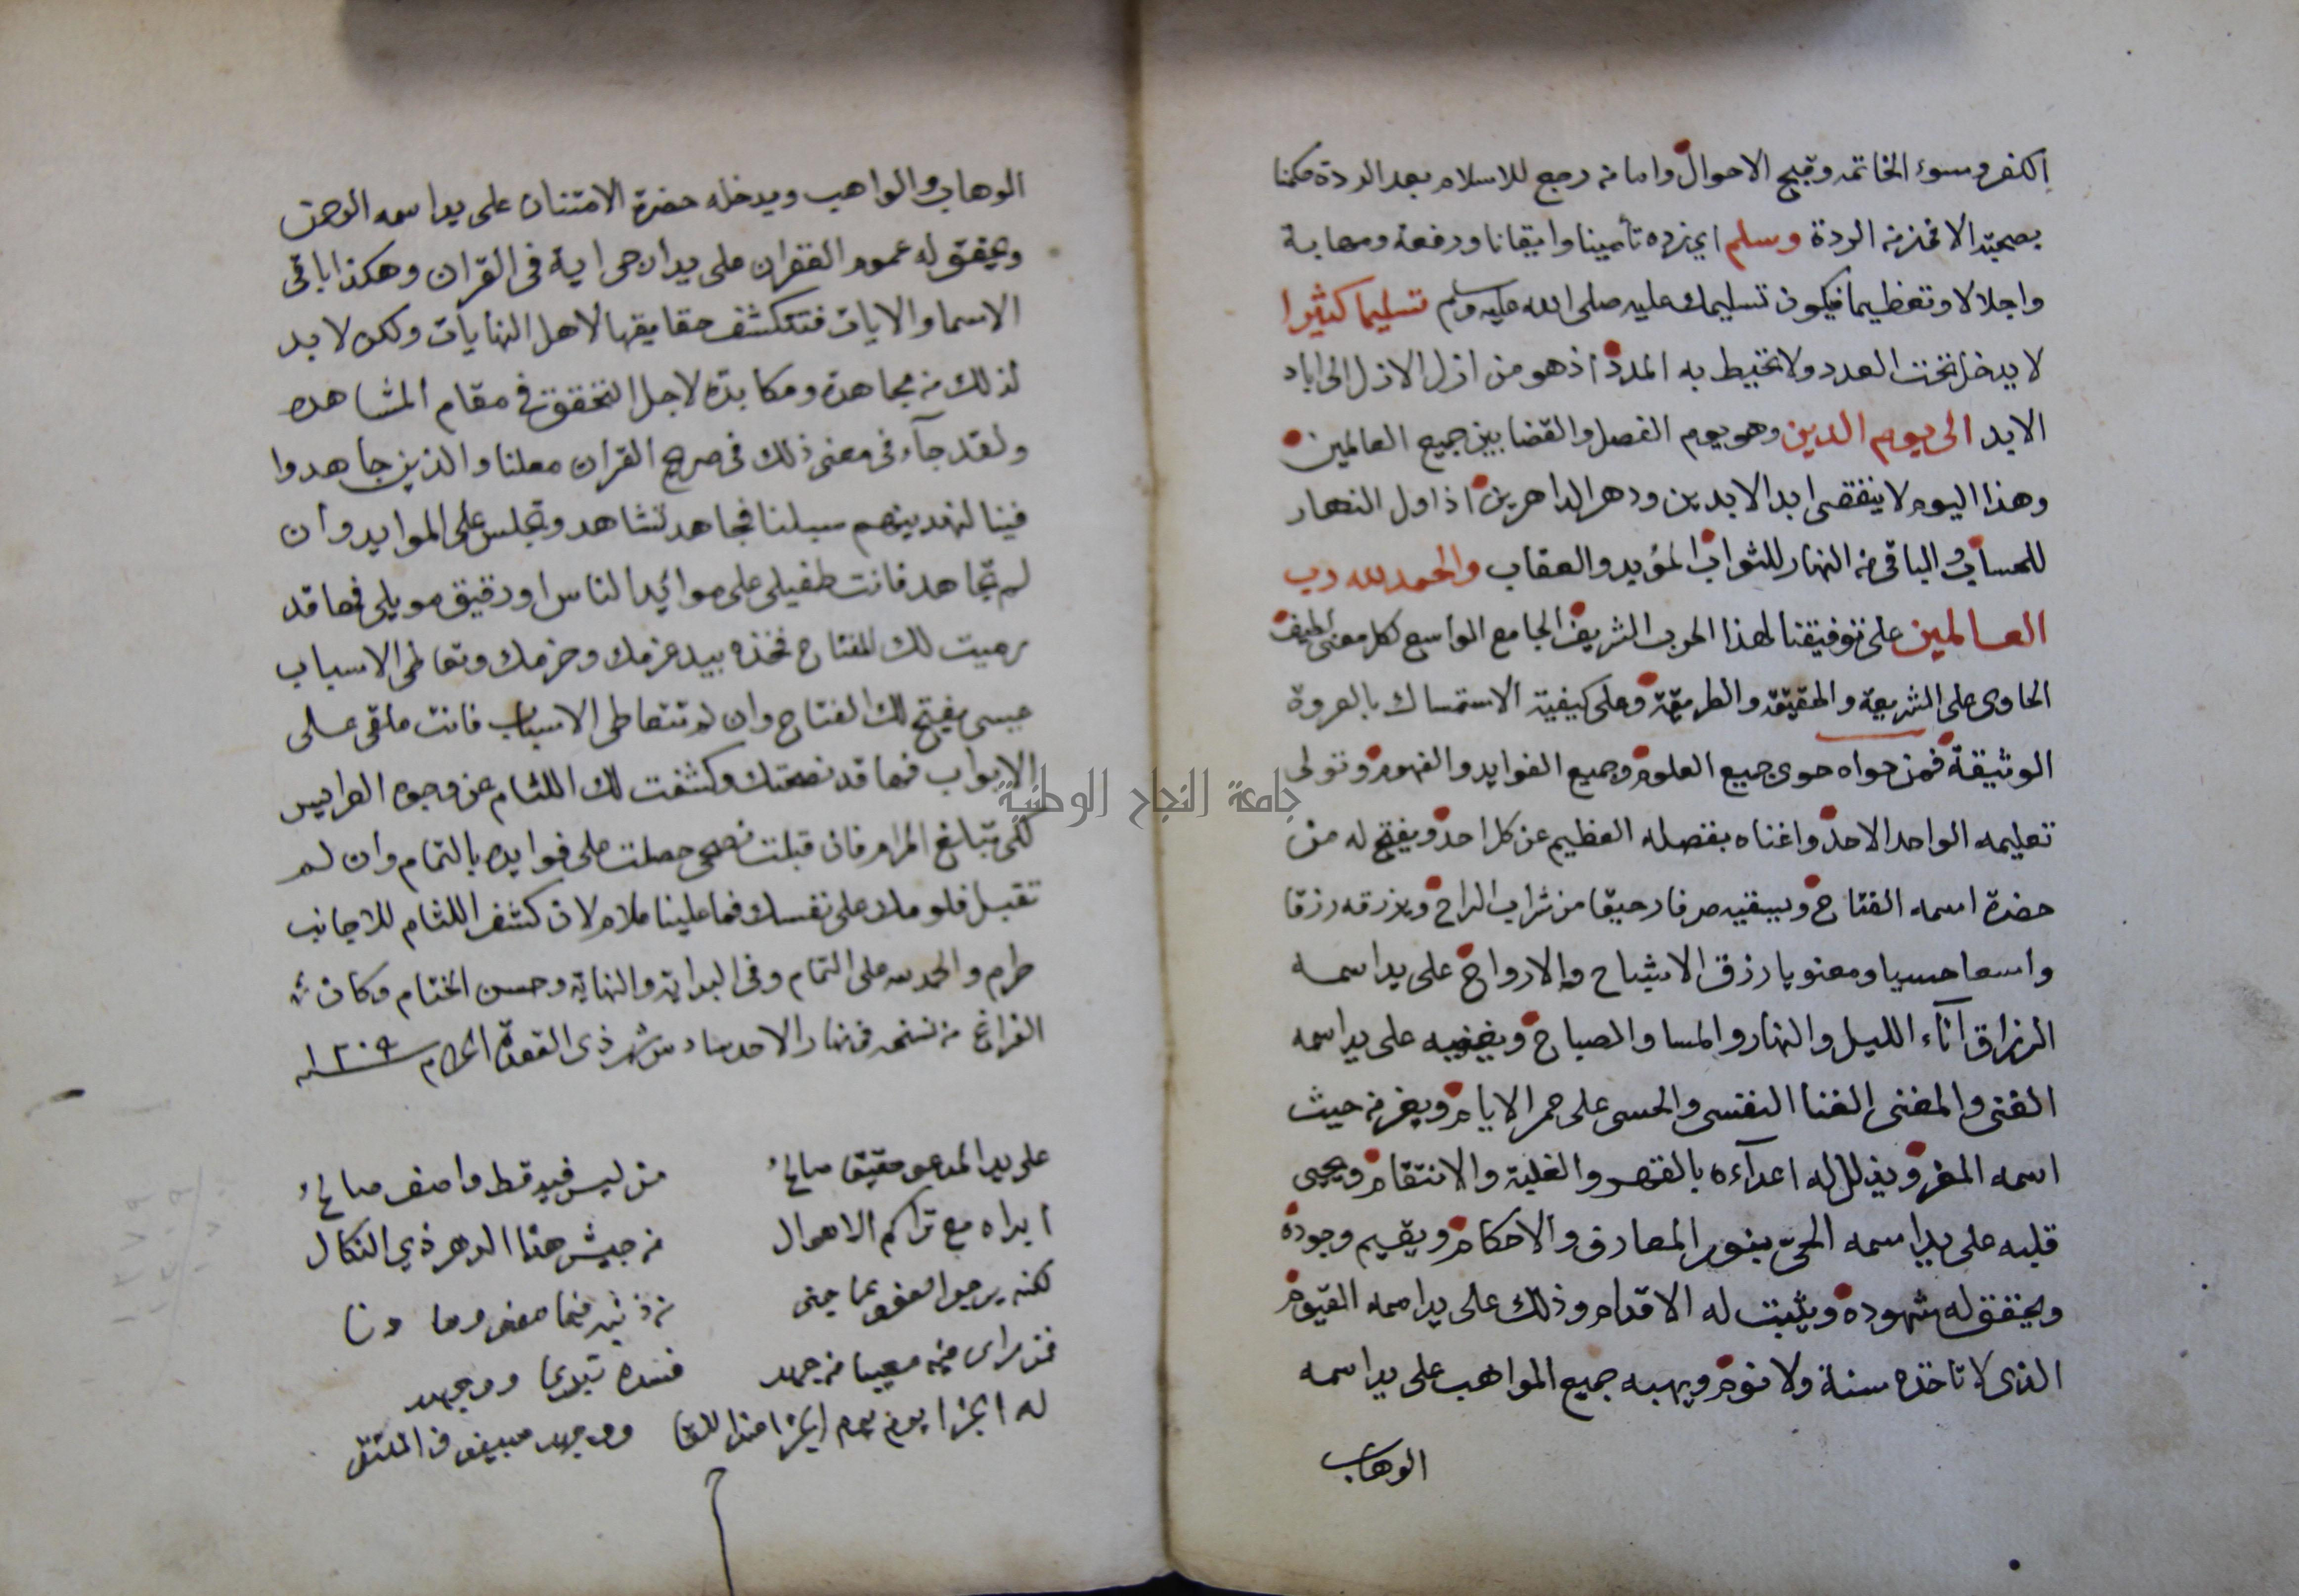 الكفر وسوء الخاتمه وقبح الاحوال واما من رجع للاسلام بعد الردة مكمنا
بصحبته الا فمن الردة وسلم اي زده تأمينا وايقانا ورفعة ومهابة
واجلالا وتعظيما فيكون تسليمك عليه صلى الله عليه وسلم تسليما كثيرا
لا يدخل تحت العدد ولا تحيط به المدد اذ هو من ازل الازل الى اباد
الابد الى يوم الدين وهو يوم الفصل والقضا بين جميع العالمين
وهذا اليوم لا ينقضى ابد الابدين ودهر الداهرين اذ اول النهار
للحساب والباقى من النهار للثواب المؤيد والعقاب والحمد لله رب
العالمين على توفيقنا لهذا الحزب الشريف الجامع الواسع لكل معنى لطيف
الحاوى على الشريعة والحقيقة والطريقة وعلى كيفية الاستمساك بالعروة
الوثيقة فمن حواه حوى جميع العلوم وجميع الفوايد والفهوم وتولى
تعليمه الواحد الاحد واغناه بفضله العظيم عن كل احد ويفتح له من
حضرة اسمه الفتاح ويسقيه صرفا رحيقا من شراب الراح ويرزقه رزقا
واسعا حسيا ومعنويا رزق الاشباح والارواح على يد اسمه
الرزاق آناء الليل والنهار والمسا والصباح ويغنيه على يد اسمه
الغنى والمغنى الغنا النفسى والحسى على ممر الايام ويعز من حيث
اسمه المعز ويذلل له اعدآءه بالقهر والغلبة والانتقام ويحيى
قلبه على يد اسمه الحى بنور المعارف والاحكام ويقيم وجوده
ويحقق له شهوده ويثبت له الاقدام وذلك على يد اسمه القيوم
الذى لا تاخذه سنة ولا نوم ويهبه جميع المواهب على يد اسمه
الوهاب
الوهاب والواهب ويدخله حضرة الامتنان على يد اسمه الرحمن
ويحقق له عموم الغفران على يد ارجى اية فى القران وهكذا باقى
الاسما والايات فتنكشف حقايقها لاهل النهايات ولكن لا بد
لذلك من مجاهدة ومكابدة لاجل التحقق فى مقام المشاهده
ولقد جآء فى معنى ذلك فى صريح القران معلنا والذين جاهدوا
فينا لنهدينهم سبلنا فجاهد تشاهد وتجلس على الموايد وان
لم تجاهد فانت طفيلى على موائيد الناس او رقيق مويلى فها قد
رميت لك المفتاح فخذه بيد عزمك وحزمك وتعاطى الاسباب
عيسى يفتح لك الفتاح وان لم تتعاطى الاسباب فانت ملقى على
الابواب فها قد نصحتك وكشفت لك اللثام عن وجوه العرايس
لكى تبلغ المرام فان قبلت نصحى حصلت على فوايده بالتمام وان لم
تقبل فلومك على نفسك فما علينا ملام لان كشف اللثام للاجانب
حرام والحمد لله على التمام وفى البداية والنهاية وحسن الختام وكان
الفراغ من نسخه فى نهار الاحد سادس شهر ذى القعدة الحرام سنة ١٢٠٩
على يد المدعو حقيقا صالح من ليس فيه قط وصف صالح
ابداه مع تراكم الاهوال من جيش هذا الدهر ذي النكال
لكنه يرجوا العفو عما جنى من ذنبه فيما مضى وما دنا
فمن راى فيه معيبا من جهد فسده تبرعا ووجهد
له الجزا يوم يوم الجزا عند اللقا ووجهه مبيض فى الملتقى
جامعة النجاح الوطنية